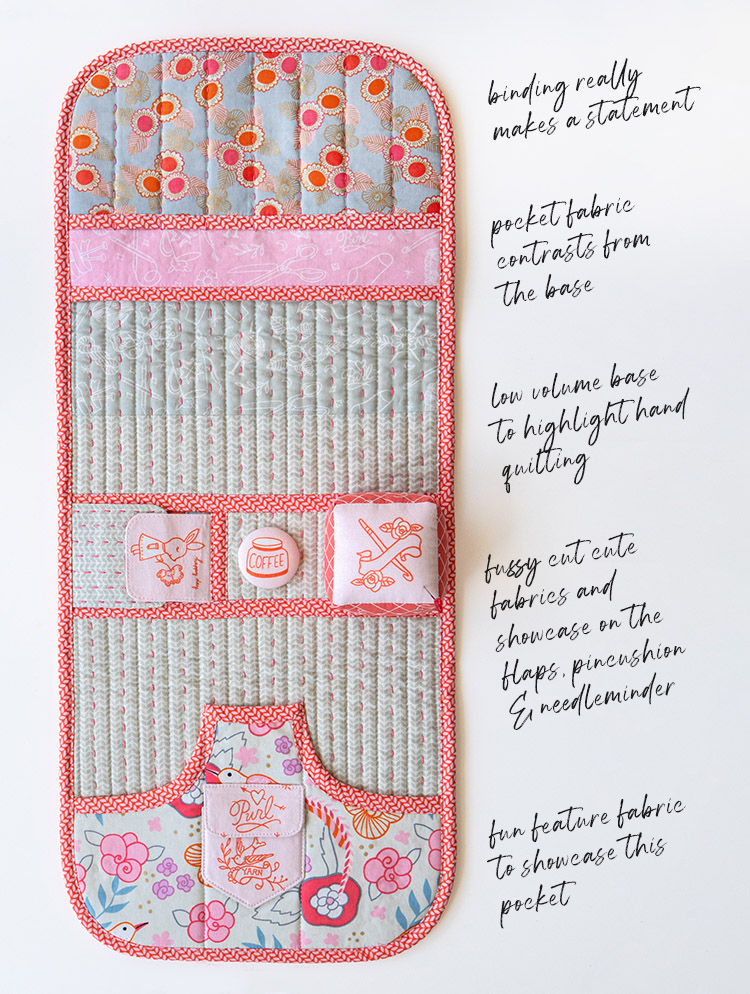 binding really
makes a statement
pocket fabric
contrasts from
the base
low volume base
to highlight hand
quilting
COFFEE
hey honey
fussy cut cute
fabrics and
showcase on the
flaps, pincushion
& needleminder
Purl
YARN
fun feature fabric
to showcase this
pocket